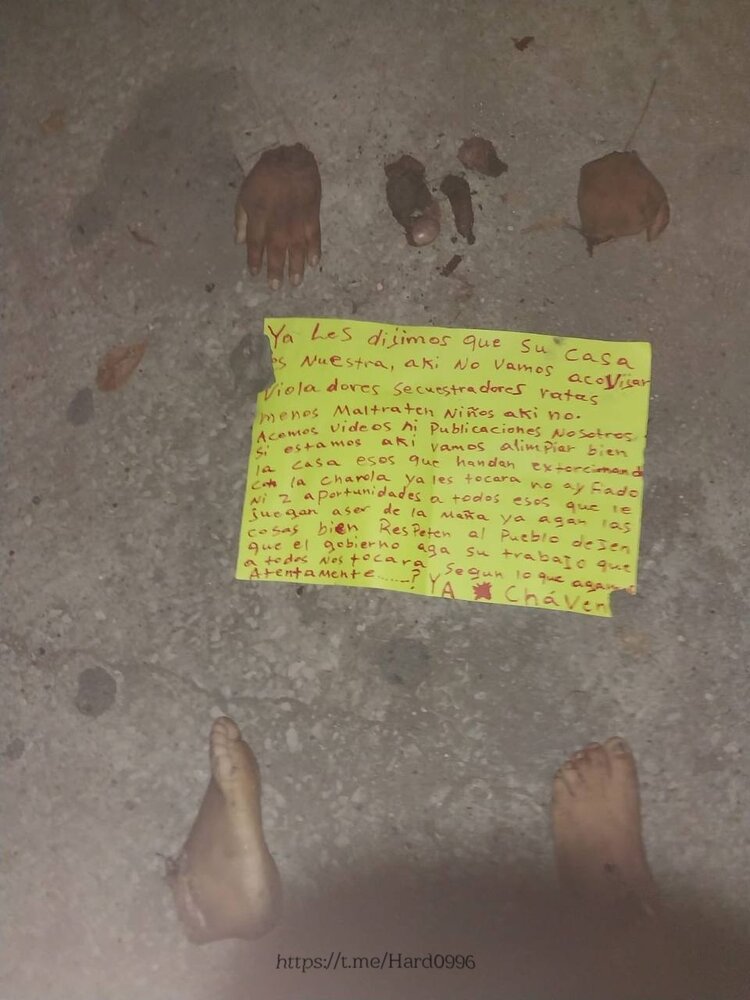 Ya Les dijimos que su Casa
es Nuestra, aki No Vamos acovijar
Violadores Secuestradores ratas
menos Maltraten Niños aki no.
Acemos Videos Ni Publicaciones Nosotros
Si estamos aki vamos alimpiar bien
la casa esos que handan extorcionando
con la charola ya les tocara no ay fiado
Ni 2 aportunidades a todos esos que le
juegan aser de la Maña ya agan las
cosas bien Respeten al Pueblo dejen
que el gobierno aga su trabajo que
a todos Nos tocara Segun lo que agamos
Atentamente......? YA Cháven
https://t.me/Hard0996